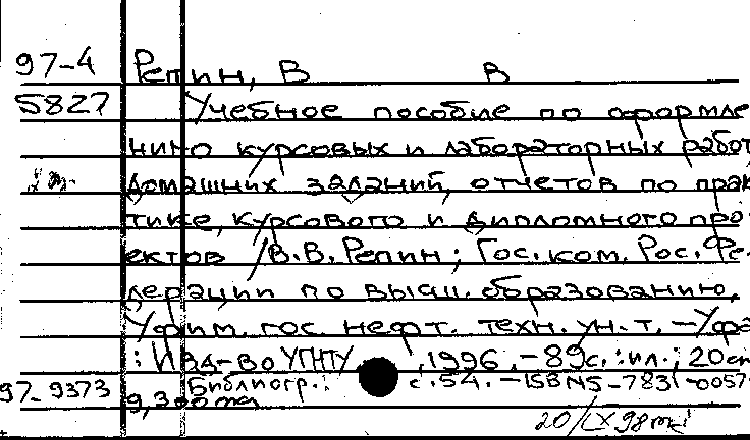 97-4 Репин, В В
5827 Учебное пособие по оформле
нию курсовых и лабораторных работ
домашних заданий, отчетов по прак
тике, курсового и дипломного про
ектов /В.В.Репин; Гос.ком. Рос.Фе-
дерации по высш. образованию,
Уфим. гос. нефт. техн. ун.-т. —Уфа
: Изд-во УГНТУ, 1996.-89с.:ил.; 20см
97-9373 Библиогр.: с.54.-ISBN5-7831-0057
20/IX 98